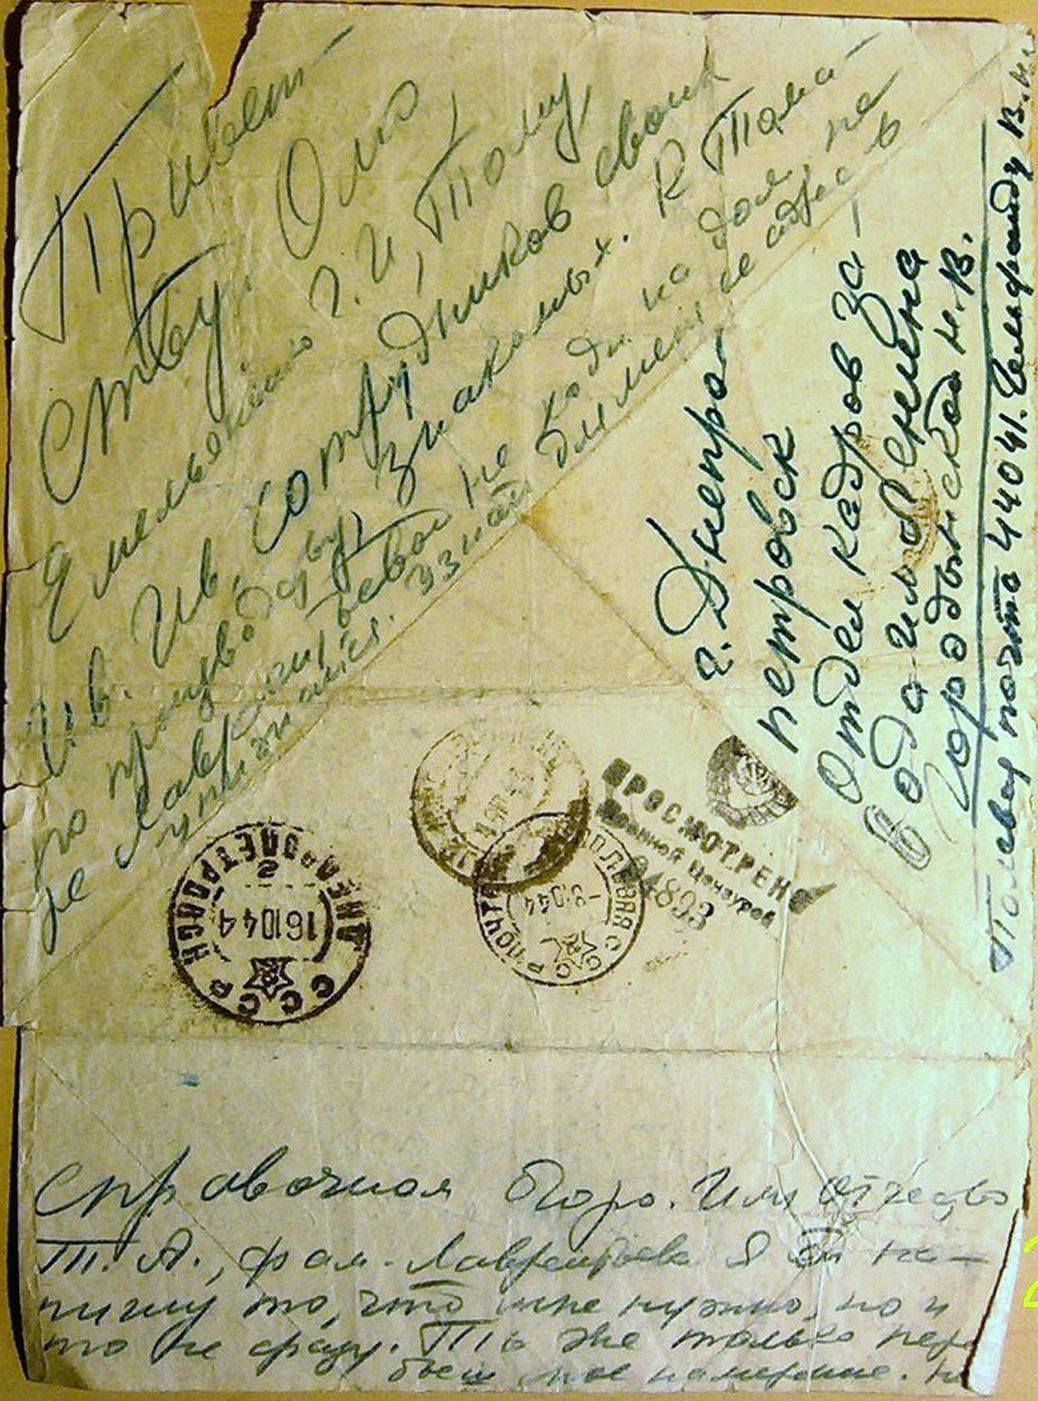 Привет
Ству, Оло,
Емельяненко Г. И, Толу
Ив. Ив, сотрудников своих
по производству знакомых. К Тама-
ре Лаврентьевой не ходи на дом, не
унижайся. Узнай для меня ее адрес в
г. Днепро-
петровск
Отдел кадров за-
вода им Ленина
Городынской Н. В.
Полевая почта 44041. В.
ПРОСМОТРЕНО
Военной Цензурой
04893
ДНЕПРОПЕТРОВСК
2
16 10 44
СССР
ПОЛЕВАЯ ПОЧТА
-9 10 44
СССР
Справочная бюро. Имя отчество
Т. А., фам. Лаврентьева Я ей на-
пишу то, что мне нужно, но и
то не сразу. Ты же только
бьеш мое намерение.